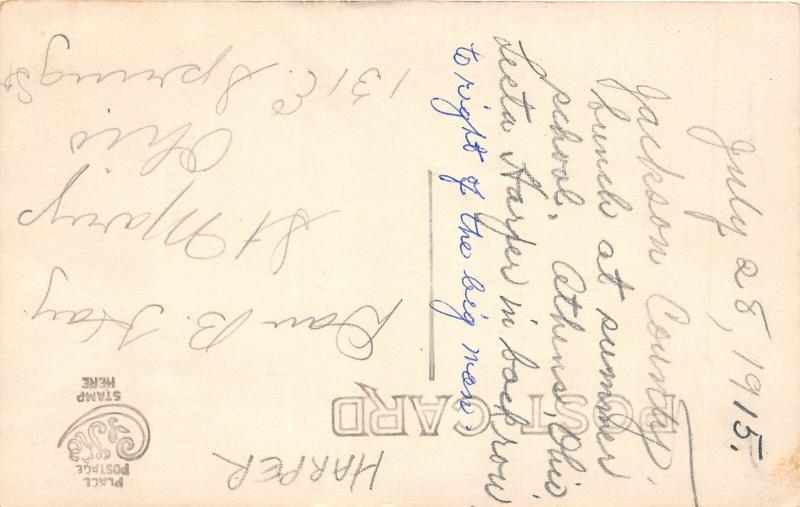 July 28, 1915.
Jackson County,
bunch at summer
school, Athens, Ohio,
Lecta Harper in back row
to right of the big man.
POST CARD
PLACE
POSTAGE
STAMP
HERE
HARPER
B. Hay
St Marys
Ohio
131 E. Spring St